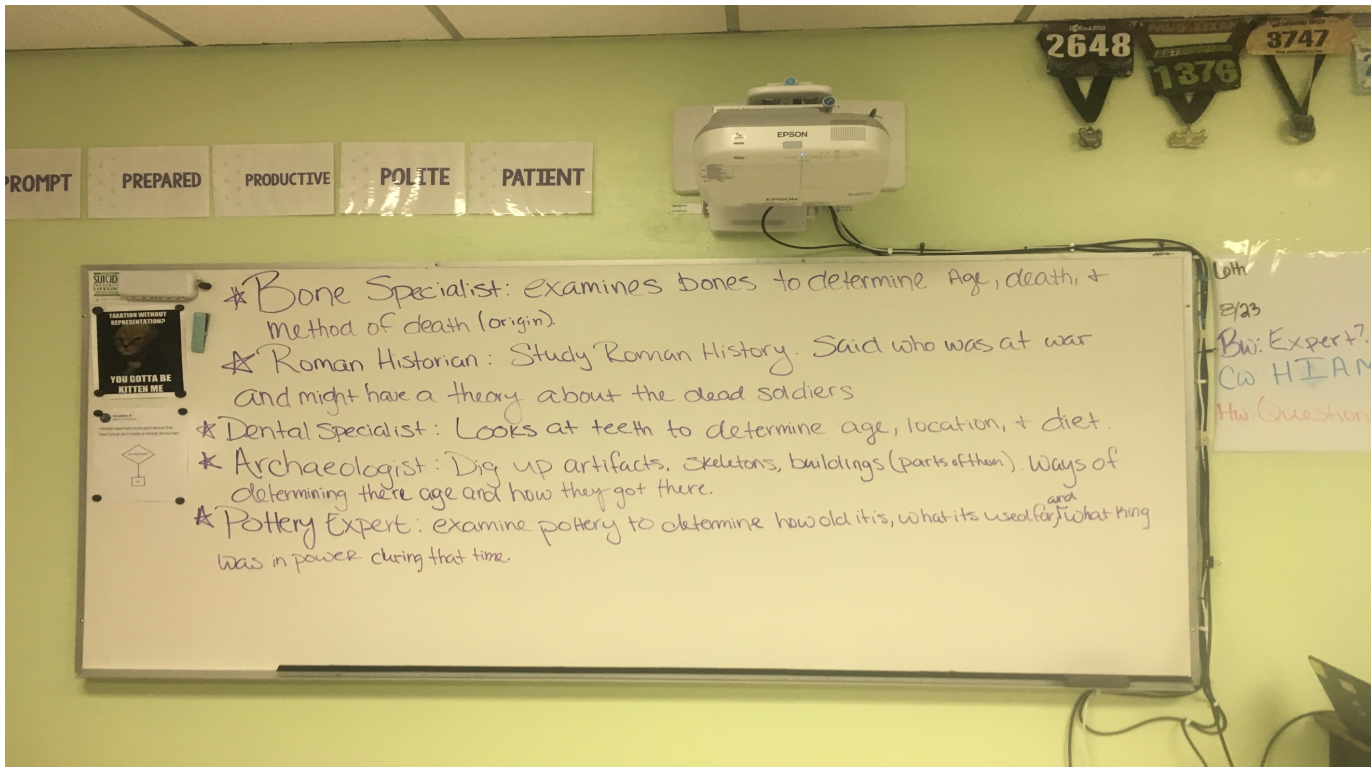 2648
1376
3747
EPSON
EPSON
PROMPT
PREPARED
PRODUCTIVE
POLITE
PATIENT
SUICID
TAXATION WITHOUT
REPRESENTATION?
YOU GOTTA BE
KITTEN ME
☆ Bone Specialist: examines bones to determine Age, death, +
method of death (origin).
☆ Roman Historian: Study Roman History. Said who was at war
and might have a theory about the dead soldiers
☆ Dental Specialist: Looks at teeth to determine age, location, + diet.
☆ Archaeologist: Dig up artifacts, skeletons, buildings (parts of them). Ways of
determining there age and how they got there.
☆ Pottery Expert: examine pottery to determine how old it is, what its used for, and what king
was in power during that time.
6th
8/23
BW: Expert?
CW: HIAM
HW: Question